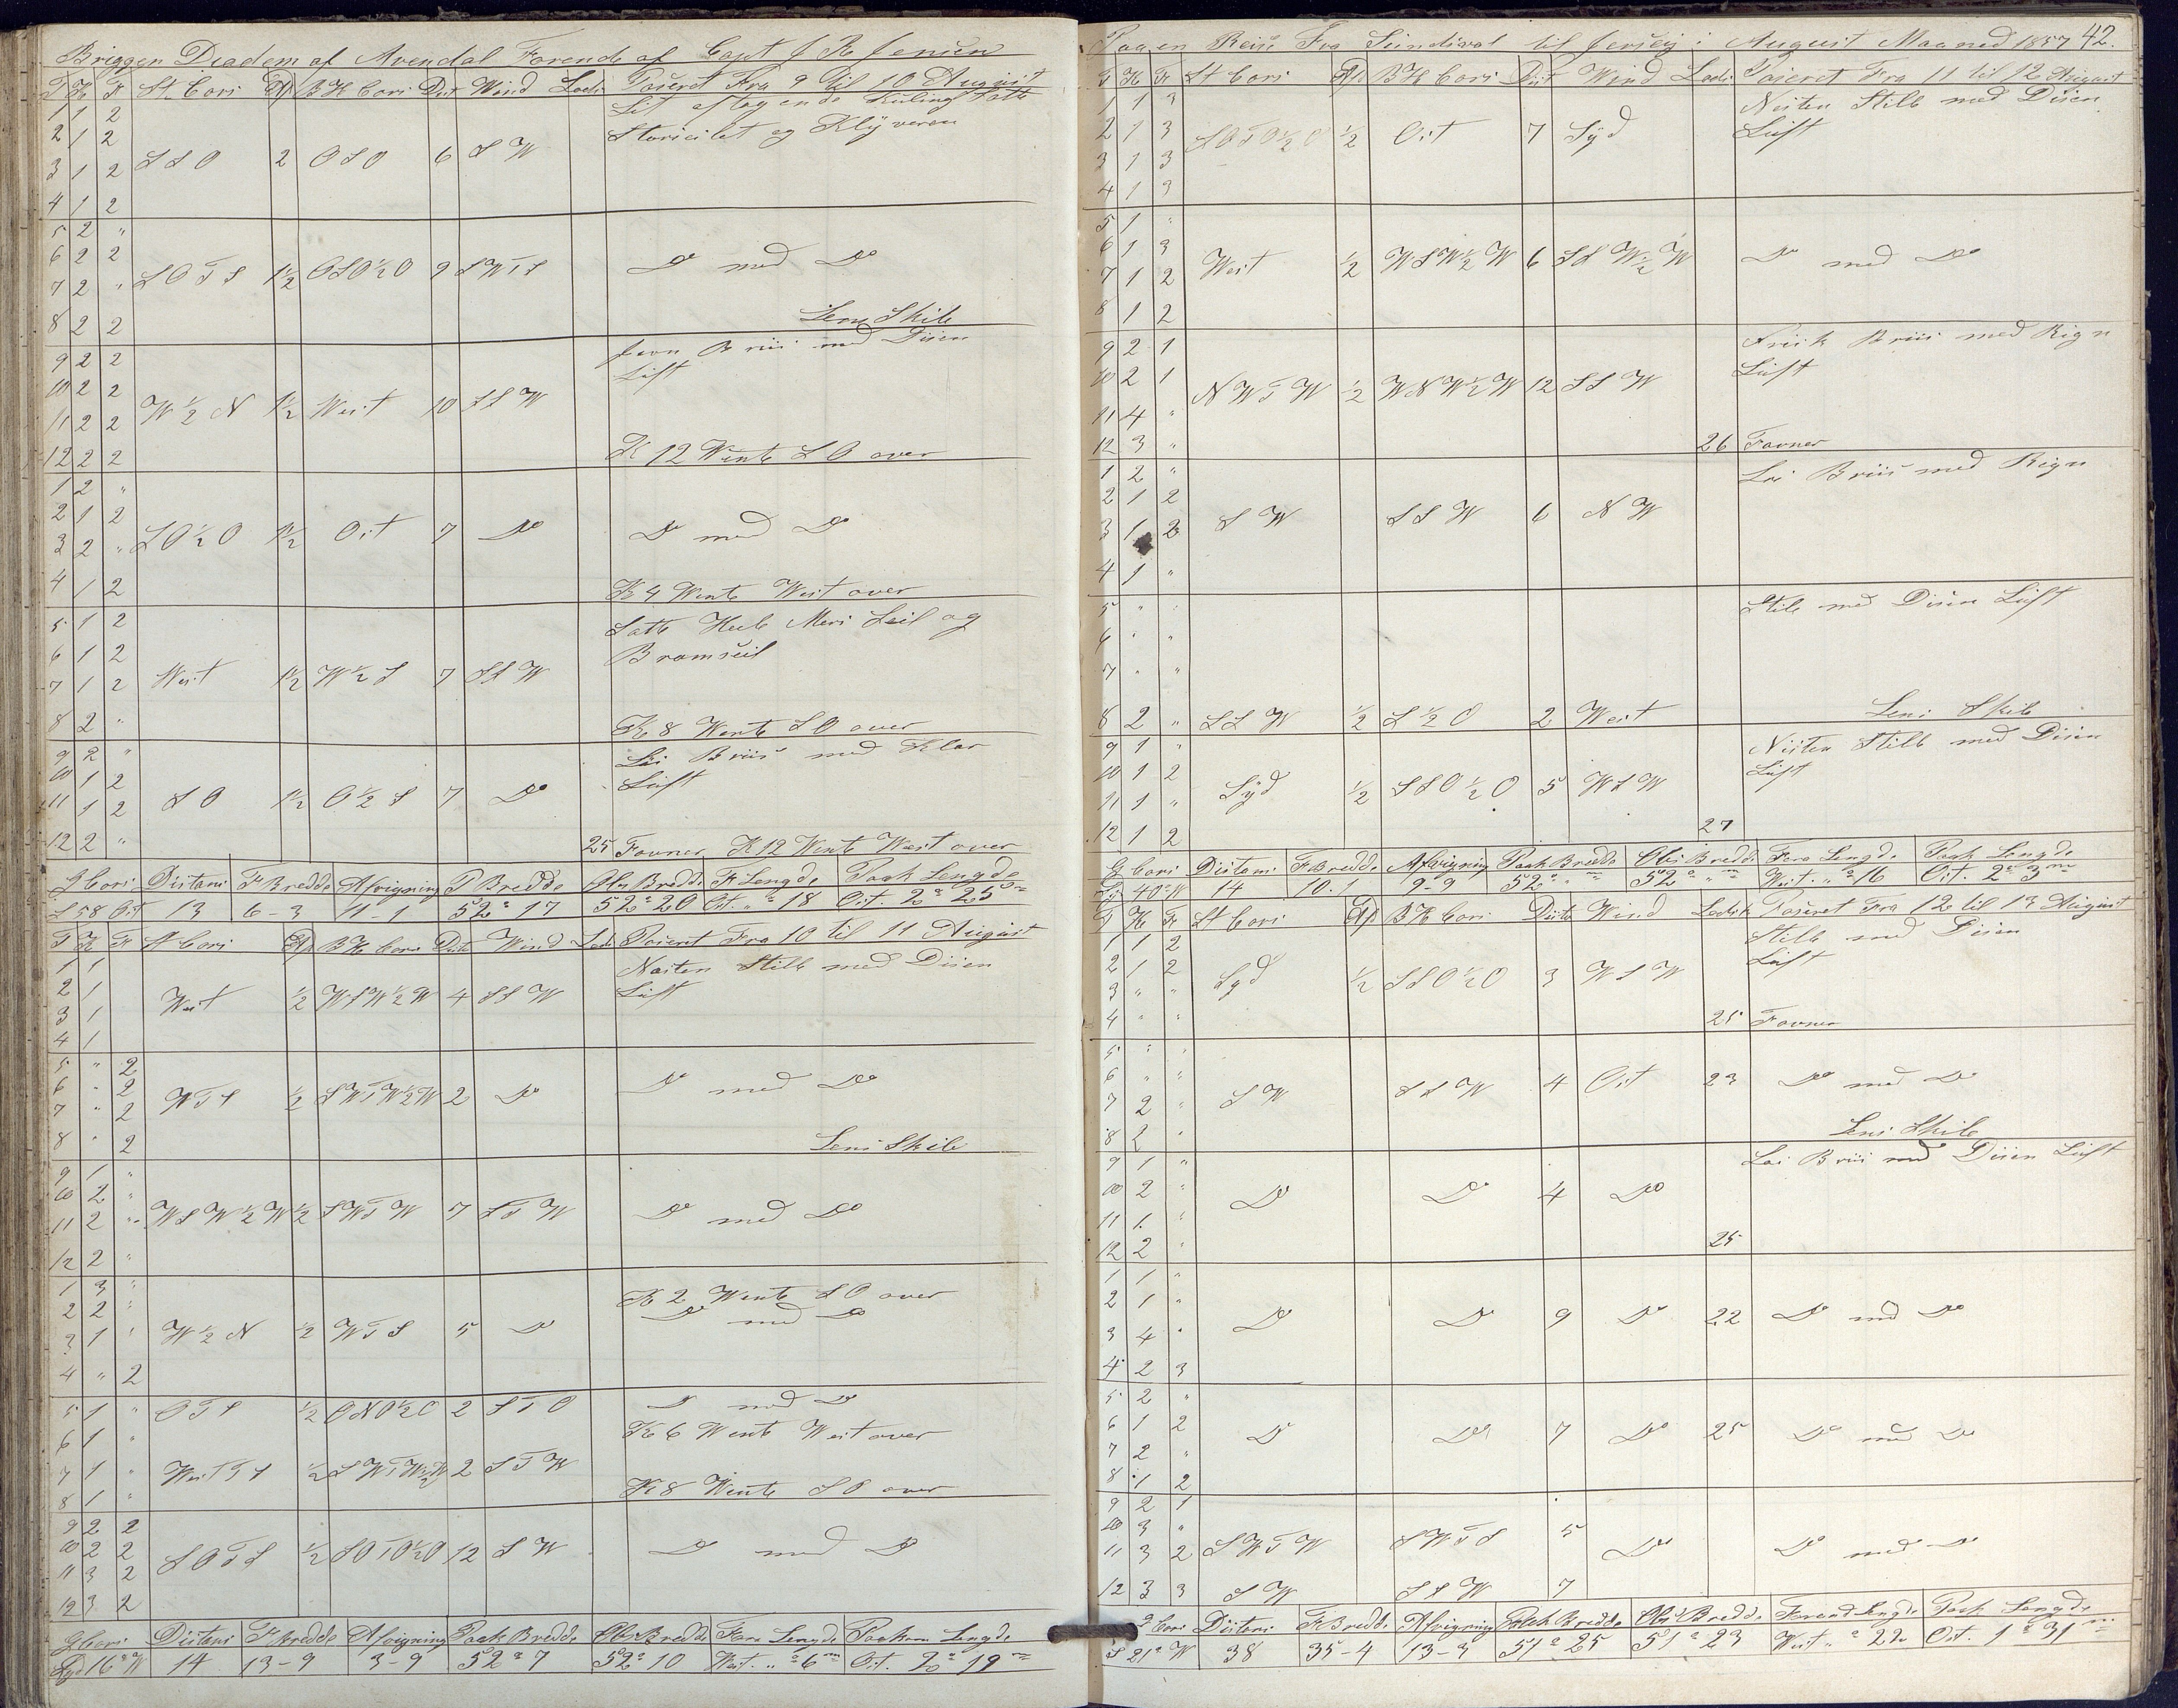 Briggen Diadem af Arendal Förende af Capt J R Jensen
T K F St Cors Afd B H Cors Dist Wind Lods Paseret Fra 9 til 10 August
1 1 2 Lit aftagende Kuling Satte
2 1 2 Storseilet og Klÿveren
3 1 2 SSO 2 OSO 6 SW
4 1 2
5 2 "
6 2 2
7 2 " SOTS 1½ OSO½O 9 SWTS Do med Do
8 2 2 Lens Skib
9 2 2 Jevn Briis med Diisen
10 2 2 Lüft
11 2 2 W½N 1½ West 10 SSW
12 2 2 K 12 Wente SO over
1 2 "
2 1 2
3 2 " SO½O 1½ Ost 7 Do Do med Do
4 1 2 K 4 Wente West over
5 1 2 Satte Heele Mers Seil og
6 1 2 Bramseil
7 1 2 West 1½ W½S 7 SSW
8 2 " K 8 Wente SO over
9 2 " Löi Briis med Klar
10 1 2 Lüft
11 1 2 SO 1½ O½S 7 Do
12 2 " 25 Favner K 12 Wente West over
G Cors Distans F Bredde Afvigning P Bredde Obs Bredde F Lengde Paak Lengde
S 58 Ost 13 6-3 11-1 52° 17 52° 20 Ost. "° 18 Ost. 2° 25m
T K F St Cors Afd B H Cors Dist Wind Lods Paseret Fra 10 til 11 August
1 1 Næsten Stille med Diisen
2 1 West ½ WSW½W 4 SSW Lüft
3 1
4 1
5 " 2
6 " 2
7 " 2 WTS ½ SWTW½W 2 Do Do med Do
8 " 2 Lens Skib
9 1 "
10 2 "
11 2 " WSW½W ½ SWTW 7 STW Do med Do
12 2 "
1 3 " K 2 Wente SO over
2 2 " Do med Do
3 1 " W½N ½ WTS 5 Do
4 " 2
5 1 " OTS ½ ONO½O 2 STO Do med Do
6 1 " K 6 Wente West over
7 1 " West TS ½ SWTW½W 2 STW
8 1 " K 8 Wente SO over
9 2 2
10 2 2 SOTS ½ SOTO½O 12 SW Do med Do
11 3 2
12 3 2
G Cors Distans F Bredde Afvigning Paak Bredde Obs Bredde Fora Lengde Paakom Lengde
Syd 16° W 14 13-9 3-9 52° 7 52° 10 West. "° 6m Ost. 2° 19m
Paa en Reise Fra Sundsval til Jersey i August Maaned 1857 42.
T K F St Cors Afd B H Cors Dist Wind Lods Paseret Fra 11 til 12 August
1 1 3 Næsten Stille med Diisen
2 1 3 SOTO½O ½ Ost 7 Syd Lüft
3 1 3
4 1 3
5 1 "
6 1 3 West ½ WSW½W 6 SSW½W Do med Do
7 1 2
8 1 2
9 2 1 Frisk Briis med Rign
10 2 1 NWTW ½ WNW½W 12 SSW Lüft
11 4 "
12 3 " 26 Favner
1 2 " Löi Briis med Rign
2 1 2
3 1 2 SW SSW 6 NW
4 1 "
5 " " Stile med Diisen Lüft
6 " "
7 " "
8 2 " SSW ½ S½O 2 West Lens Skib
9 1 " Næsten Stille med Diisen
10 1 2 Syd ½ SSO½O 5 WSW Lüft
11 1 "
12 1 2 27
G Cors Distans F Bredde Afvigning Paak Bredde Obs Bredde Fora Lengde Paak Lengde
Syd 40° W 14 10.1 9-9 52° "m 52° "m West. "° 16 Ost. 2° 3m
T K F St Cors Afd B H Cors Diste Wind Lodsk Paseret Fra 12 til 13 August
1 1 2 Stille med Diisen
2 1 2 Syd ½ SSO½O 3 WSW Lüft
3 " "
4 " " 25 Favner
5 " "
6 " " SW SSW 4 Ost 23 Do med Do
7 2 "
8 2 " Lens Skib
9 1 " Löi Briis med Diisen Lüft
10 2 " Do Do 4 Do
11 1 "
12 2 " 25
1 1 "
2 1 " Do Do 9 Do 22 Do med Do
3 4 "
4 2 3
5 2 "
6 1 2 Do Do 7 Do 25 Do med Do
7 2 "
8 1 2
9 2 1
10 3 " SWTW SWTS 5
11 3 2 Do Do med Do
12 3 3 SW SSW 7
G Cors Distans F Bredde Afvigning Paak Bredde Obs Bredde Forand Lengde Paak Lengde
S 21° W 38 35-4 13-3 51° 25 51° 23 West "° 22 Ost. 1° 31m